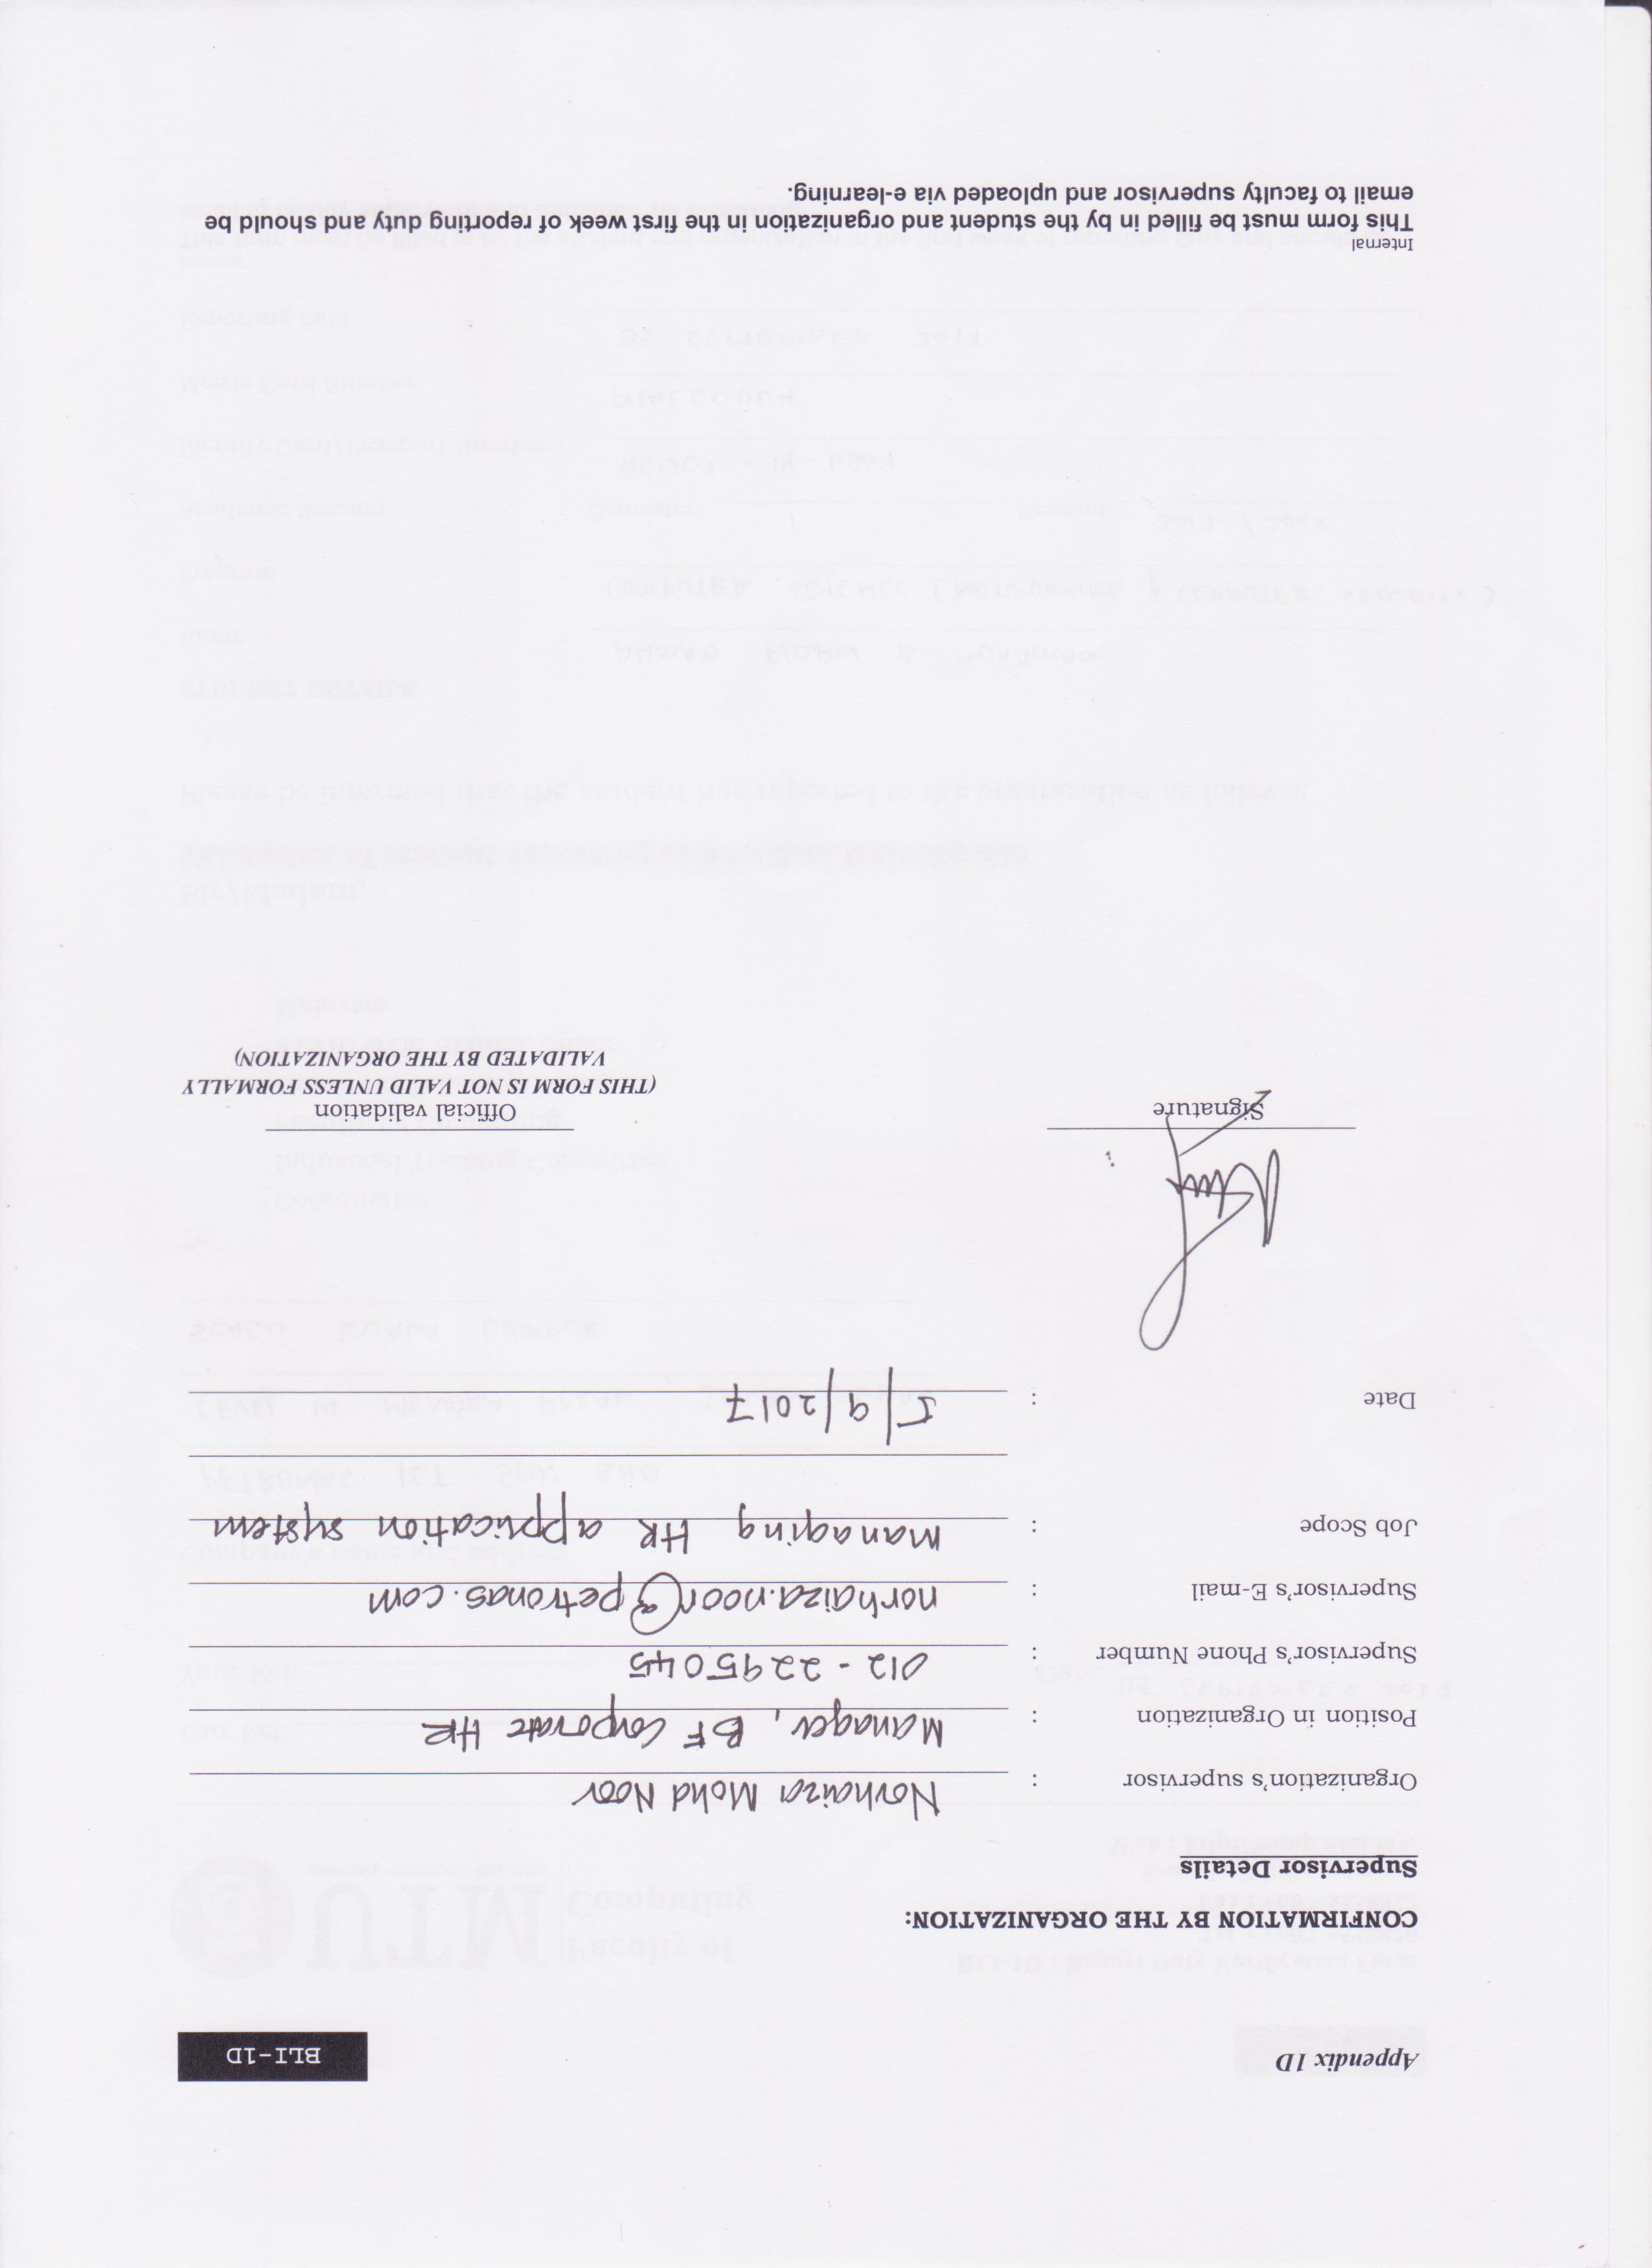 Appendix 1D
BLI-1D
CONFIRMATION BY THE ORGANIZATION:
Supervisor Details
Organization's supervisor : Norhaiza Mohd Noor
Position in Organization : Manager, BF Corporate HR
Supervisor's Phone Number : 012 - 2295045
Supervisor's E-mail : norhaiza.noor@petronas.com
Job Scope : Managing HR application system
Date : 5/9/2017
Signature
Official validation
(THIS FORM IS NOT VALID UNLESS FORMALLY
VALIDATED BY THE ORGANIZATION)
Internal
This form must be filled in by the student and organization in the first week of reporting duty and should be
email to faculty supervisor and uploaded via e-learning.